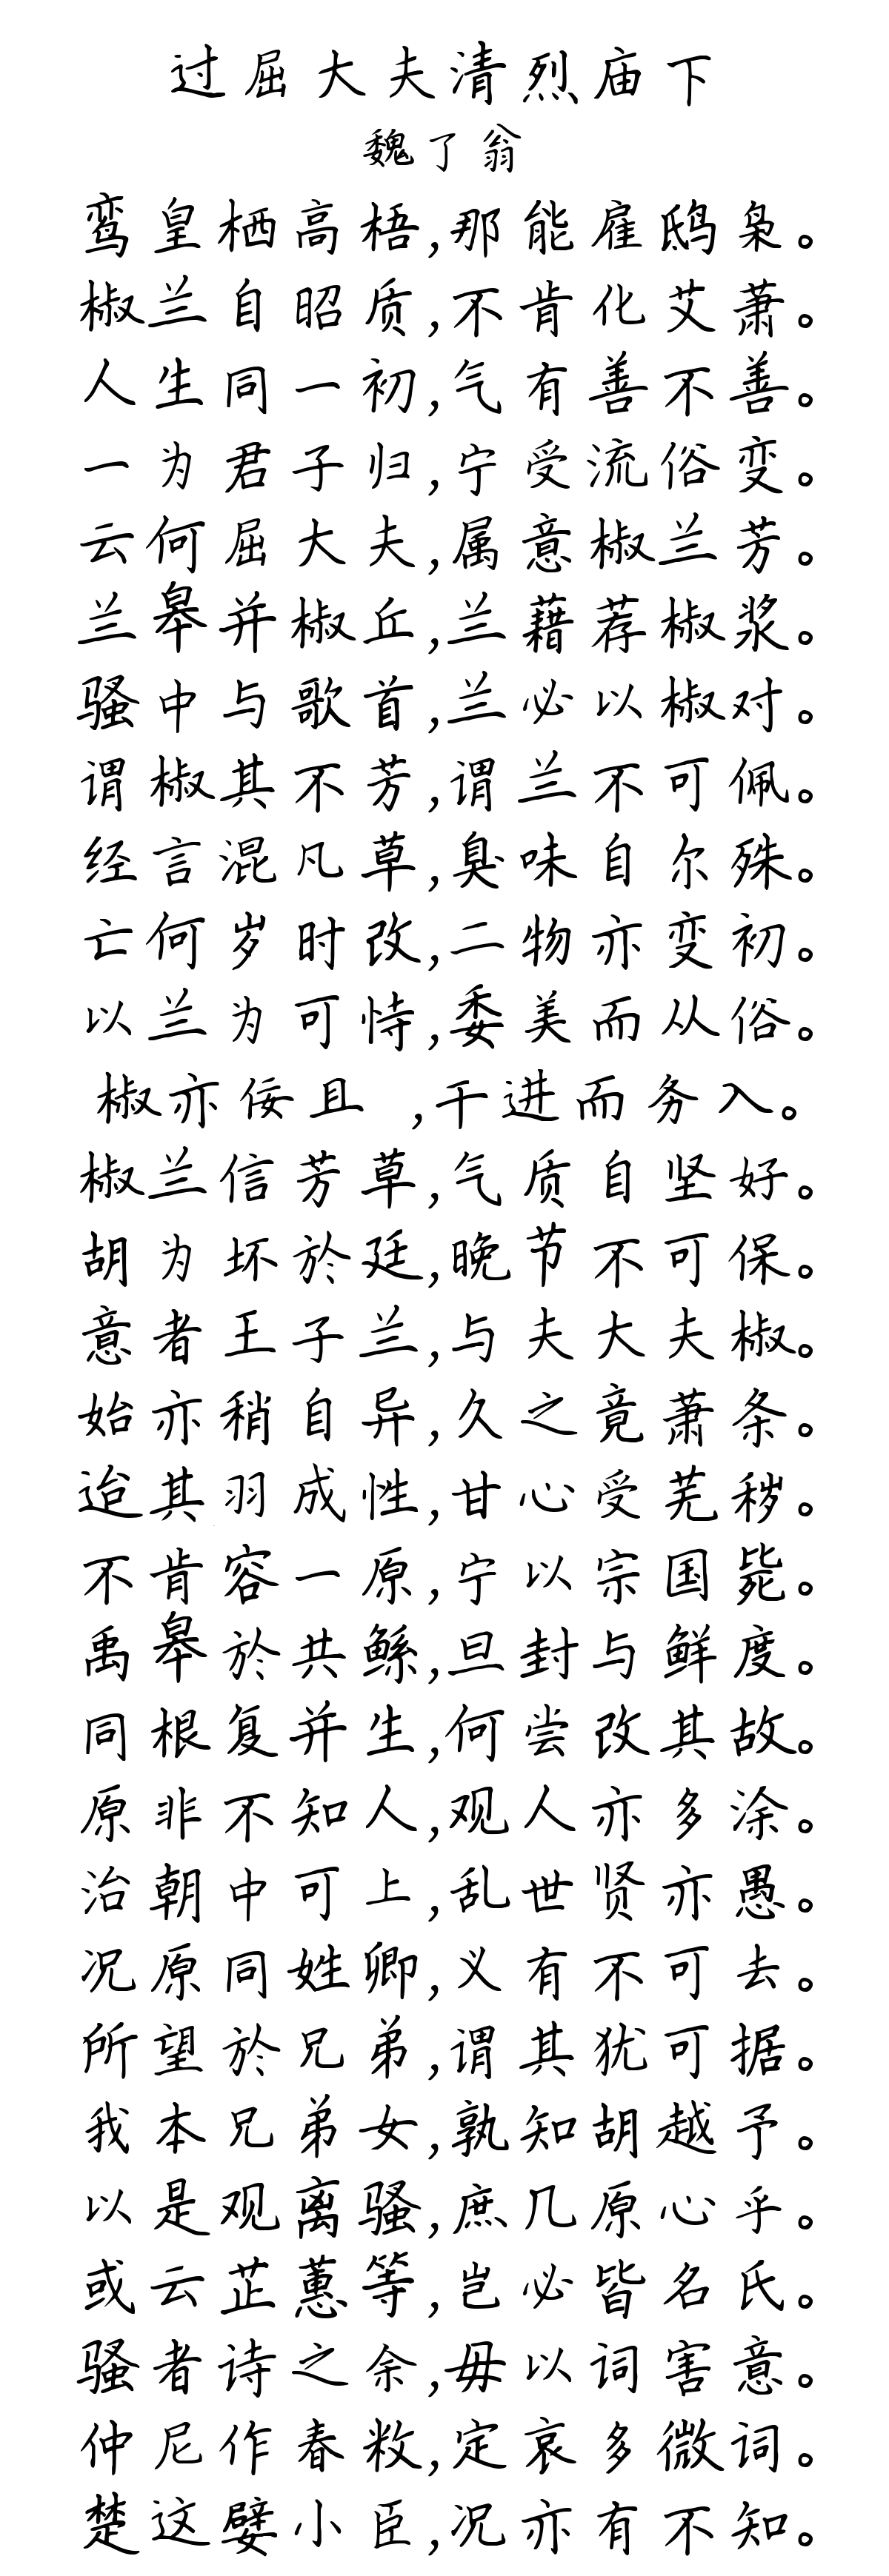 过屈大夫清烈庙下
魏了翁
鸾皇栖高梧,那能雇鸱枭。
椒兰自昭质,不肯化艾萧。
人生同一初,气有善不善。
一为君子归,宁受流俗变。
云何屈大夫,属意椒兰芳。
兰皋并椒丘,兰藉荐椒浆。
骚中与歌首,兰必以椒对。
谓椒其不芳,谓兰不可佩。
经言混凡草,臭味自尔殊。
亡何岁时改,二物亦变初。
以兰为可恃,委美而从俗。
椒亦佞且 ,干进而务入。
椒兰信芳草,气质自坚好。
胡为坏於廷,晚节不可保。
意者王子兰,与夫大夫椒。
始亦稍自异,久之竟萧条。
迨其羽成性,甘心受芜秽。
不肯容一原,宁以宗国毙。
禹皋於共鲧,旦封与鲜度。
同根复并生,何尝改其故。
原非不知人,观人亦多涂。
治朝中可上,乱世贤亦愚。
况原同姓卿,义有不可去。
所望於兄弟,谓其犹可据。
我本兄弟女,孰知胡越予。
以是观离骚,庶几原心乎。
或云芷蕙等,岂必皆名氏。
骚者诗之余,毋以词害意。
仲尼作春敉,定哀多微词。
楚这嬖小臣,况亦有不知。